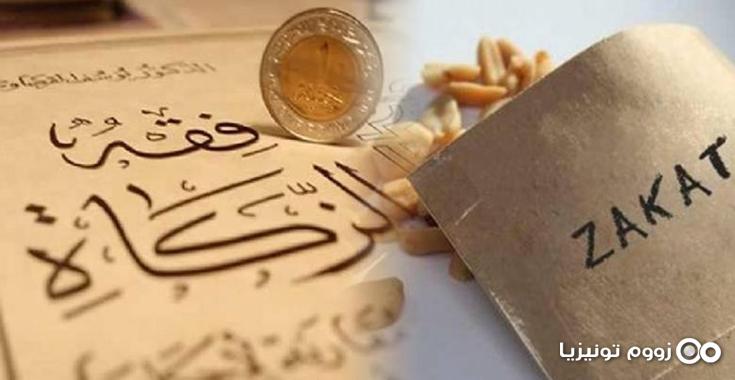 الدكتور يوسف القرضاوي
فقه
الزكاة
ZAKAT
زووم تونيزيا